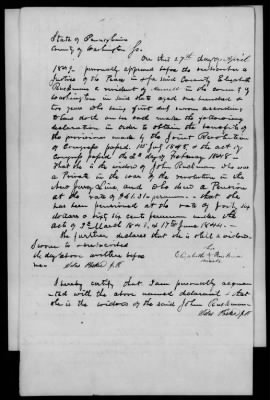 State of Pennsylvania
County of Washington Ss.
On this 27th day of April
1849 personally appeared before the subscriber a
Justice of the Peace in & for said County Elizabeth
a resident of in the county of
Washington in said State aged one hundred &
two years who being first duly sworn according
to law doth on her oath make the following
declaration in order to obtain the benefits of
the provisions made by the Joint Resolution
of Congress passed 1st July 1848 & the act of
Congress passed the 2d day of February 1848.
That she is the widow of John who was
a Private in the war of the revolution in the
New Jersey Line and who drew a Pension
at the rate of per annum - that she
has been pensioned at the rate of forty six
dollars & sixty six cents per annum under the
acts of 3d March 1843, & 17th June 1844.
She further declares that she is still a widow.
Sworn to & subscribed
the day above written before
me
her
Elizabeth
mark
I hereby certify that I am personally acquain
-ted with the above named declarant & that
she is the widow of the said John